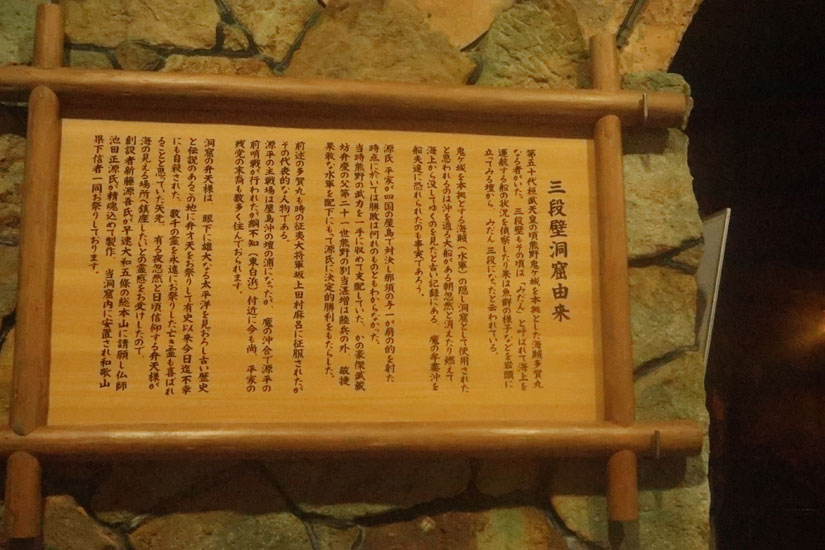 三段壁洞窟由来
第五十代桓武天皇の頃熊野鬼ヶ城を本拠とした海賊多賀丸
なる者がいた。三段壁もその頃は「みだん」と呼ばれて海上を
運航する船の状況を偵察したり果は魚群の様子などを岩頭に
立ってみる壇から、みだん、三段になったと云われている。
鬼ヶ城を本拠とする海賊(水軍)の隠し洞窟として使用された
と思われるのは沖を通る大船がある朝忽然と消えたり燃えて
海上から没してゆくのを見たと古い記録にある、魔の年萎沖を
船夫達に恐れられたのも事実であろう。
源氏、平家が四国の屋島で対決し那須の与一が扇の的を射た
時点に於いては勝敗は何れのものともわからなかった。
当時熊野の武力を一手に収めて支配していた、かの豪傑武蔵
坊弁慶の父第二十一世熊野の別当湛増は陸兵の外、敏捷
果敢な水軍を配下にもって源氏に決定的勝利をもたらした。
前述の多賀丸も時の征夷大将軍坂上田村麻呂に征服されたが
その代表的な人物である。
源平の主戦場は屋島沖の壇の浦になったが、魔の沖合で源平の
前哨戦が行われたが綱不知(東白浜)付近に今も尚、平家の
残党の末裔も数多く住んでおられます。
洞窟の弁天様は、眼下に雄大なる太平洋を見おろし古い歴史
と伝説のあるこの地に弁才天をお祭りして有史以来今日迄不幸
にも自殺された、数千の霊を永遠にお祭りしたら亡き霊も喜ばれ
ることと思っていた矢先、有る夜忽然と日頃信仰する弁天様が、
海の見える場所へ鎮座したいとの霊感をお受けしたので、
創設者新藤源吾氏が早速大和五條の総本山に請願し仏師
池田正源氏が精魂込めて製作、当洞窟内に安置され和歌山
県下信者一同お祭りしております。